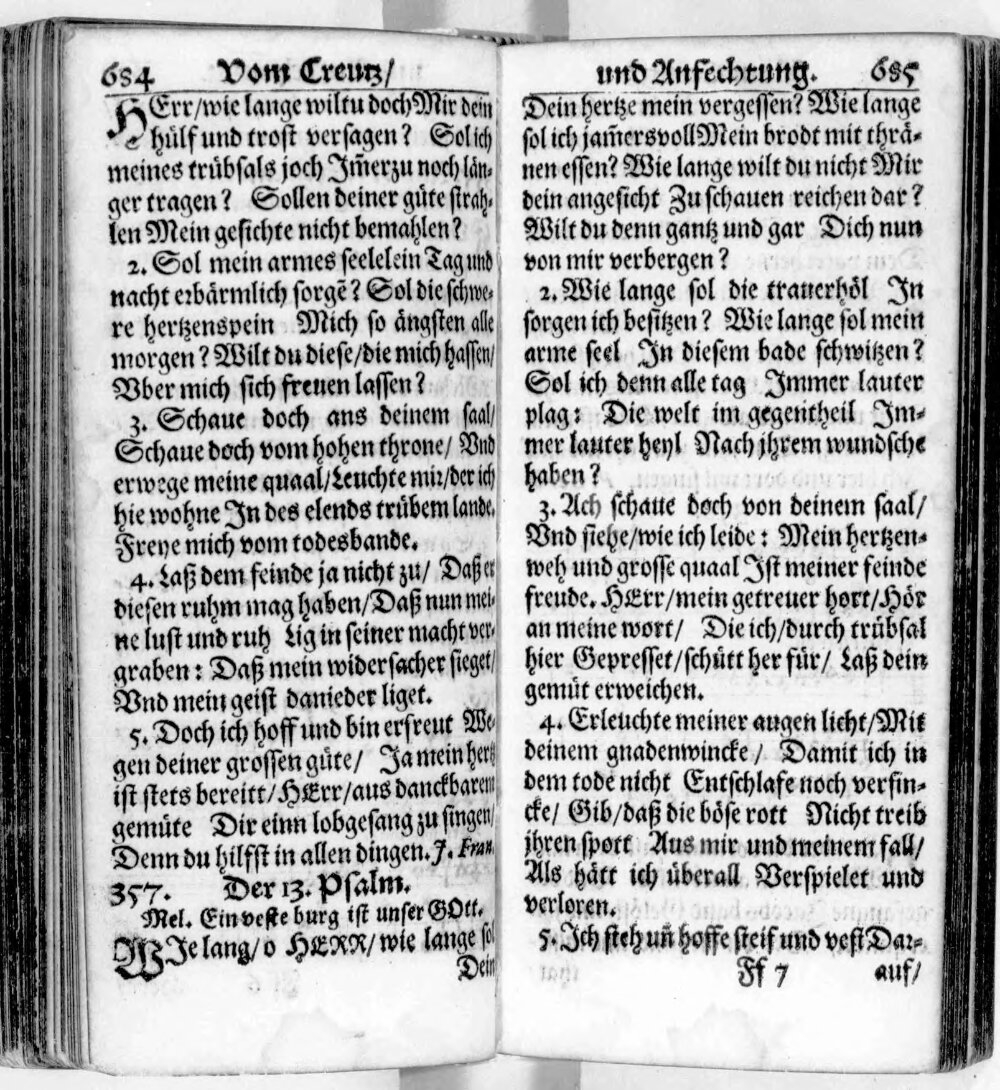 684 Vom Creutz/
HErr/wie lange wiltu doch Mir dein
hülf und trost versagen? Sol ich
meines trübsals joch Im̃erzu noch län-
ger tragen? Sollen deiner güte strah-
len Mein gesichte nicht bemahlen?
2. Sol mein armes seelelein Tag und
nacht erbärmlich sorgẽ? Sol die schwe-
re hertzenspein Mich so ängsten alle
morgen? Wilt du diese/die mich hassen/
Vber mich sich freuen lassen?
3. Schaue doch ans deinem saal/
Schaue doch vom hohen throne/ Vnd
erwege meine quaal/Leuchte mir/der ich
hie wohne In des elends trübem lande.
Freye mich vom todesbande.
4. Laß dem feinde ja nicht zu/ Daß er
diesen ruhm mag haben/Daß nun mei-
ne lust und ruh Lig in seiner macht ver-
graben: Daß mein widersacher sieget/
Vnd mein geist danieder liget.
5. Doch ich hoff und bin erfreut We-
gen deiner grossen güte/ Ja mein hertz
ist stets bereitt/HErr/aus danckbarem
gemüte Dir einn lobgesang zu singen/
Denn du hilfst in allen dingen. J. Fran.
357. Der 13. Psalm.
Mel. Ein veste burg ist unser GOtt.
WJe lang/o HERR/wie lange sol
Dein
und Anfechtung. 685
Dein hertze mein vergessen? Wie lange
sol ich jam̃ersvoll Mein brodt mit thrä-
nen essen? Wie lange wilt du nicht Mir
dein angesicht Zu schauen reichen dar?
Wilt du denn gantz und gar Dich nun
von mir verbergen?
2. Wie lange sol die trauerhöl In
sorgen ich besitzen? Wie lange sol mein
arme seel In diesem bade schwitzen?
Sol ich denn alle tag Immer lauter
plag: Die welt im gegentheil Im-
mer lauter heyl Nach jhrem wundsche
haben?
3. Ach schaue doch von deinem saal/
Vnd siehe/wie ich leide: Mein hertzen-
weh und grosse quaal Ist meiner feinde
freude. HErr/mein getreuer hort/Hör
an meine wort/ Die ich/durch trübsal
hier Gepresset/schütt her für/ Laß dein
gemüt erweichen.
4. Erleuchte meiner augen licht/Mit
deinem gnadenwincke/ Damit ich in
dem tode nicht Entschlafe noch versin-
cke/ Gib/daß die böse rott Nicht treib
jhren spott Aus mir und meinem fall/
Als hätt ich überall Verspielet und
verloren.
5. Ich steh uñ hoffe steif und vest Dar-
Ff 7 auf/